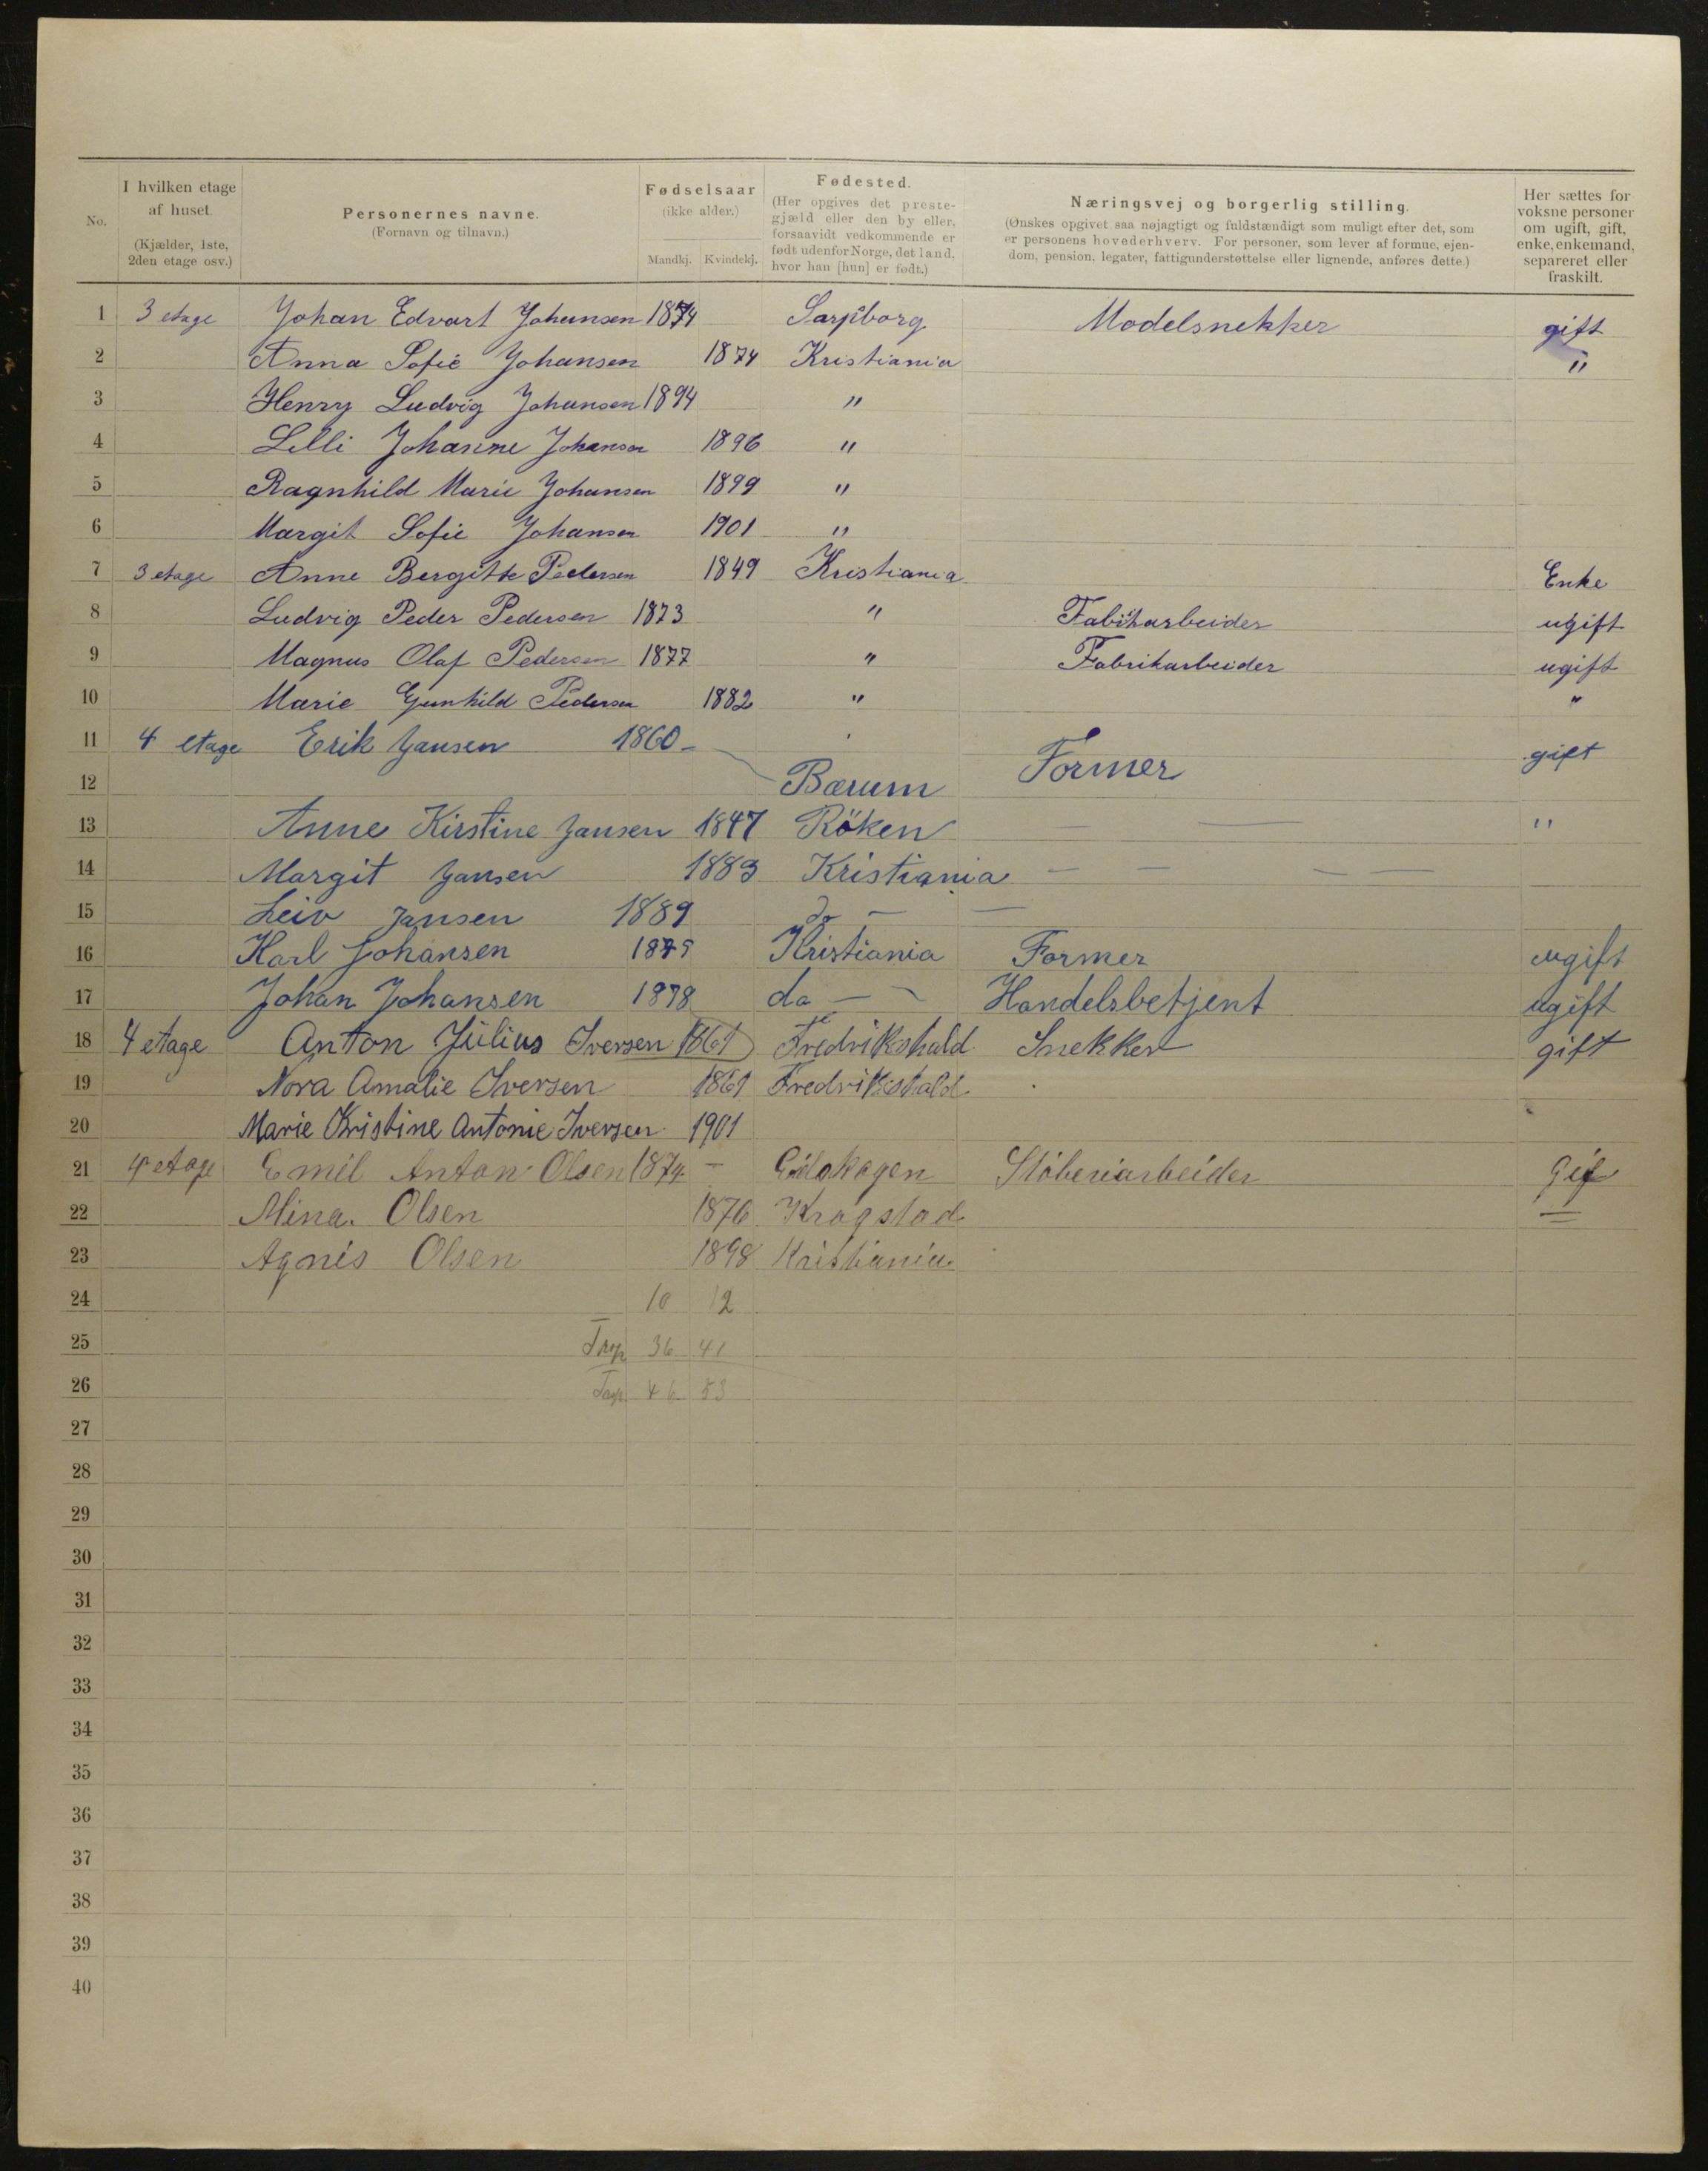 No.
I hvilken etage af huset. (Kjælder, 1ste, 2den etage osv.)
Personernes navne. (Fornavn og tilnavn.)
Fødselsaar (ikke alder.) Mandkj. Kvindekj.
Fødested. (Her opgives det prestegjæld eller den by eller, forsaavidt vedkommende er født udenfor Norge, det land, hvor han [hun] er født.)
Næringsvej og borgerlig stilling. (Ønskes opgivet saa nøjagtigt og fuldstændigt som muligt efter det, som er personens hovederhverv. For personer, som lever af formue, ejendom, pension, legater, fattigunderstøttelse eller lignende, anføres dette.)
Her sættes for voksne personer om ugift, gift, enke, enkemand, separeret eller fraskilt.
1 3 etage Johan Edvart Johansen 1874 Sarpsborg Modelsnekker gift
2 Anna Sofie Johansen 1874 Kristiania "
3 Henry Ludvig Johansen 1894 "
4 Lilli Johanne Johansen 1896 "
5 Ragnhild Marie Johansen 1899 "
6 Margit Sofie Johansen 1901 "
7 3 etage Anne Bergitte Pedersen 1849 Kristiania Enke
8 Ludvig Peder Pedersen 1873 " Fabrikarbeider ugift
9 Magnus Olaf Pedersen 1877 " Fabrikarbeider ugift
10 Marie Gunhild Pedersen 1882 " "
11 4 etage Erik Jansen 1860 - gift
12 Bærum Former
13 Anne Kirstine Jansen 1847 Röken — — "
14 Margit Jansen 1883 Kristiania — — — —
15 Leiv Jansen 1889 do — —
16 Karl Johansen 1875 Kristiania Former ugift
17 Johan Johansen 1878 do — - Handelsbetjent ugift
18 4 etage Anton Julius Iversen 1861 Fredrikshald Snekker gift
19 Nora Amalie Iversen 1861 Fredrikshald
20 Marie Kristine Antonie Iversen 1901
21 4 etage Emil Anton Olsen 1874 - Stöberiarbeider Gif
22 Mina. Olsen 1876 Kragstad =
23 Agnes Olsen 1898 Kristiania
24 10 12
25 36 41
26 46 53
27
28
29
30
31
32
33
34
35
36
37
38
39
40